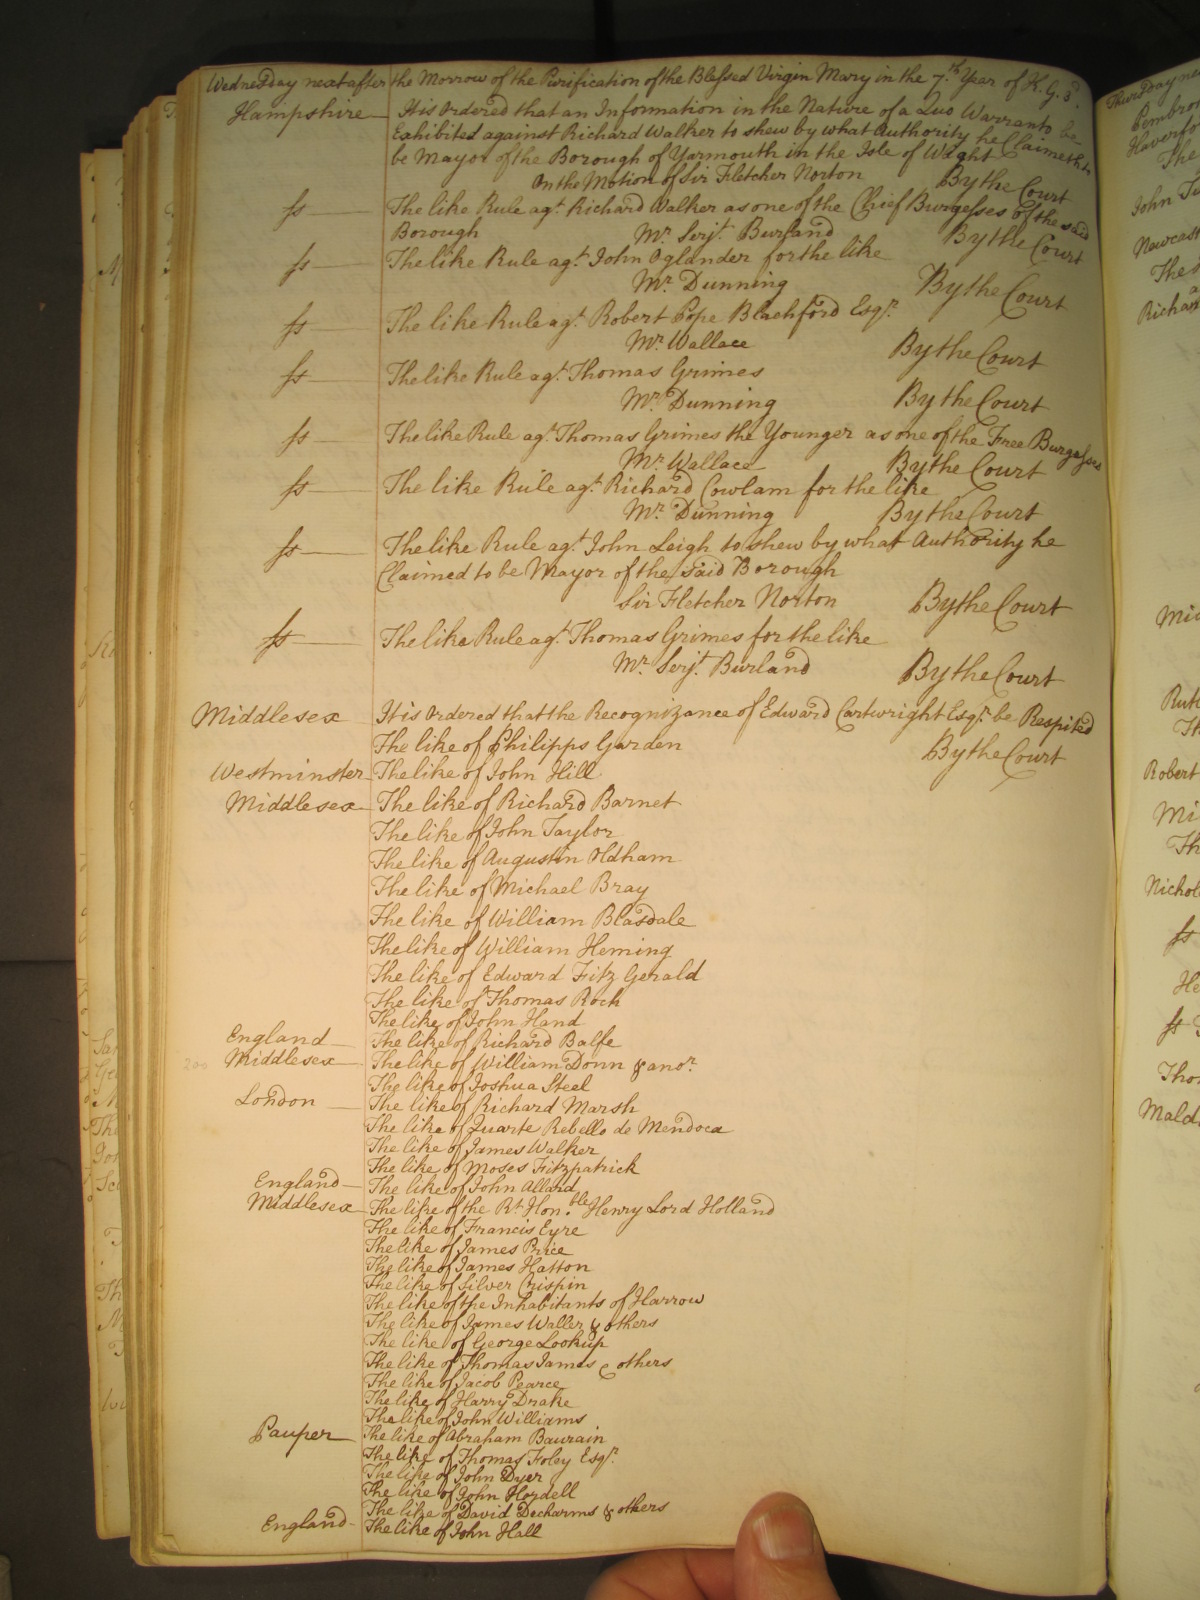 Wednesday next after the Morrow of the Purification of the Blessed Virgin Mary in the 7.th Year of K. G. 3.d
Hampshire It is Ordered that an Information in the Nature of a Quo Warranto be
Exhibited against Richard Walker to shew by what Authority he Claimeth to
be Mayor of the Borough of Yarmouth in the Isle of Wight
On the Motion of Sir Fletcher Norton By the Court
ss The like Rule agt. Richard Walker as one of the Chief Burgesses of the said
Borough Mr. Serjt. Burland By the Court
ss The like Rule agt. John Oglander for the like
Mr. Dunning By the Court
ss The like Rule agt. Robert Pope Blachford Esqr.
Mr. Wallace By the Court
ss The like Rule agt. Thomas Grimes
Mr. Dunning By the Court
ss The like Rule agt. Thomas Grimes the Younger as one of the Free Burgesses
Mr. Wallace By the Court
ss The like Rule agt. Richard Cowlam for the like
Mr. Dunning By the Court
ss The like Rule agt. John Leigh to shew by what Authority he
Claimed to be Mayor of the said Borough
Sir Fletcher Norton By the Court
ss The like Rule agt. Thomas Grimes for the like
Mr. Serjt. Burland By the Court
Middlesex It is Ordered that the Recognizance of Edward Cartwright Esqr. be Respited
The like of Philipps Garden By the Court
Westminster The like of John Hill
Middlesex The like of Richard Barnet
The like of John Taylor
The like of Augustin Oldham
The like of Michael Bray
The like of William Blasdale
The like of William Heming
The like of Edward Fitz Gerald
The like of Thomas Roch
The like of John Hand
England The like of Richard Balfe
Middlesex The like of William Donn & anor.
The like of Joshua Steel
London The like of Richard Marsh
The like of Duarte Rebello de Mendoca
The like of James Walker
The like of Moses Fitzpatrick
England The like of John Allard
Middlesex The like of the Rt. Hon.ble Henry Lord Holland
The like of Francis Eyre
The like of James Price
The like of James Hatton
The like of Silver Crispin
The like of the Inhabitants of Harrow
The like of James Waller & others
The like of George Lookup
The like of Thomas James & others
The like of Jacob Pearce
The like of Harry Drake
The like of John Williams
Pauper The like of Abraham Baurain
The like of Thomas Foley Esqr.
The like of John Dyer
The like of John Hoydell
The like of David Decharms & others
England The like of John Hall